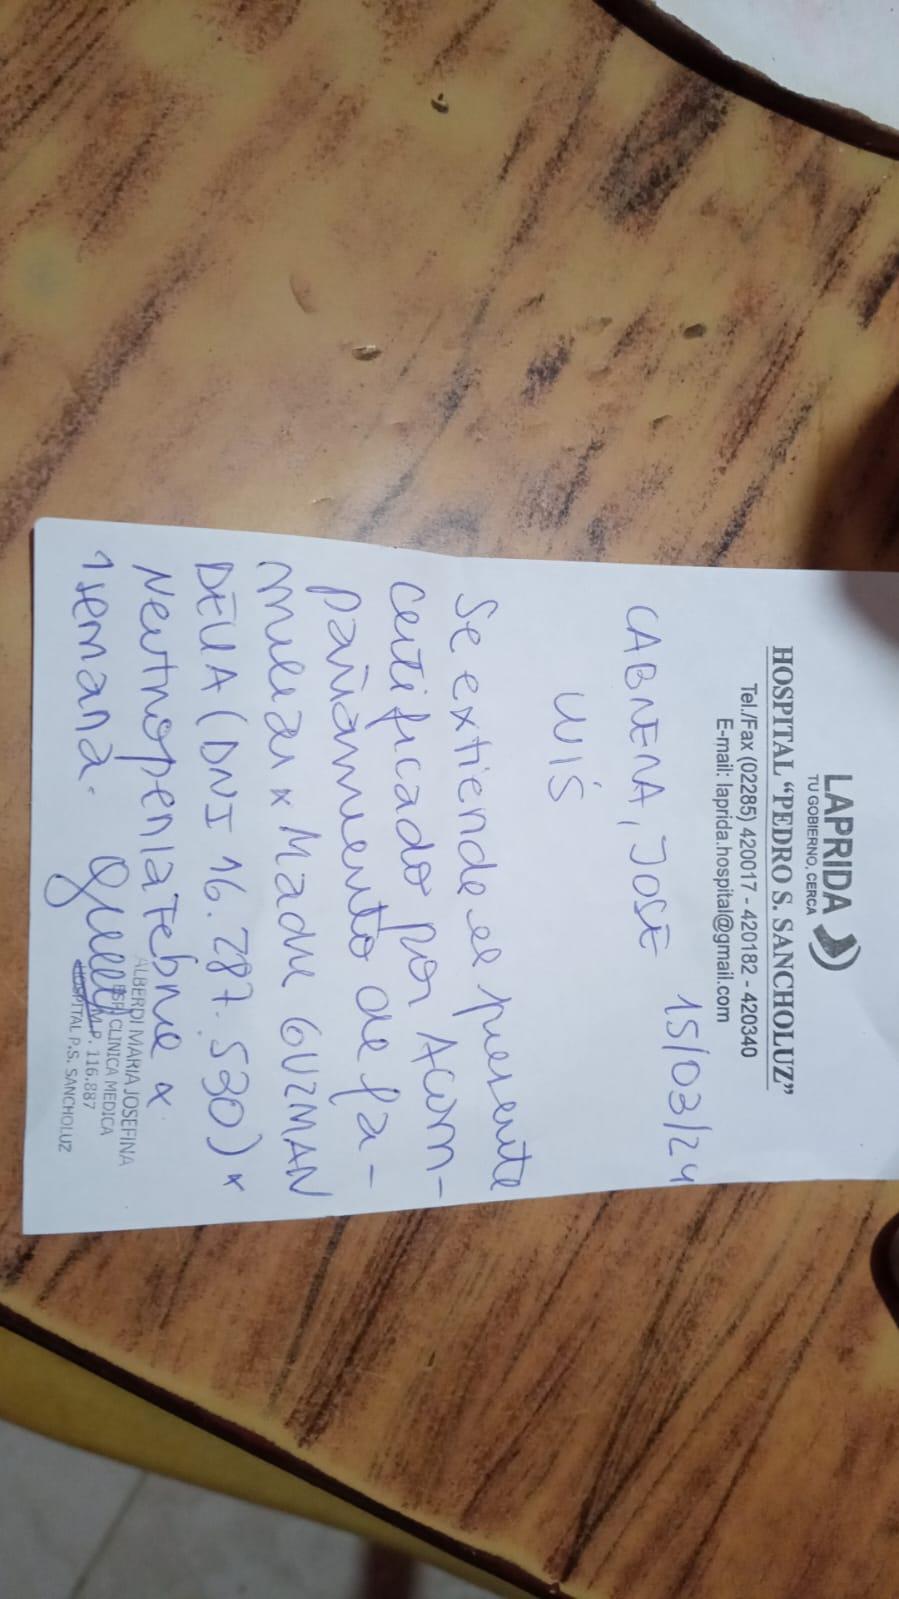 LAPRIDA
TU GOBIERNO, CERCA
HOSPITAL "PEDRO S. SANCHOLUZ"
Tel./Fax (02285) 420017 - 420182 - 420340
E-mail: laprida.hospital@gmail.com
15/03/24
CABRERA, JOSE
LUIS
Se extiende el presente
certificado por Acom-
pañamiento de fa-
miliar x Madre GUZMAN
DELIA (DNI 16.287.530) x
Neutropenia Febril x
1 semana.
ALBERDI MARIA JOSEFINA
ESP. CLINICA MEDICA
M.P. 116.887
HOSPITAL P.S. SANCHOLUZ